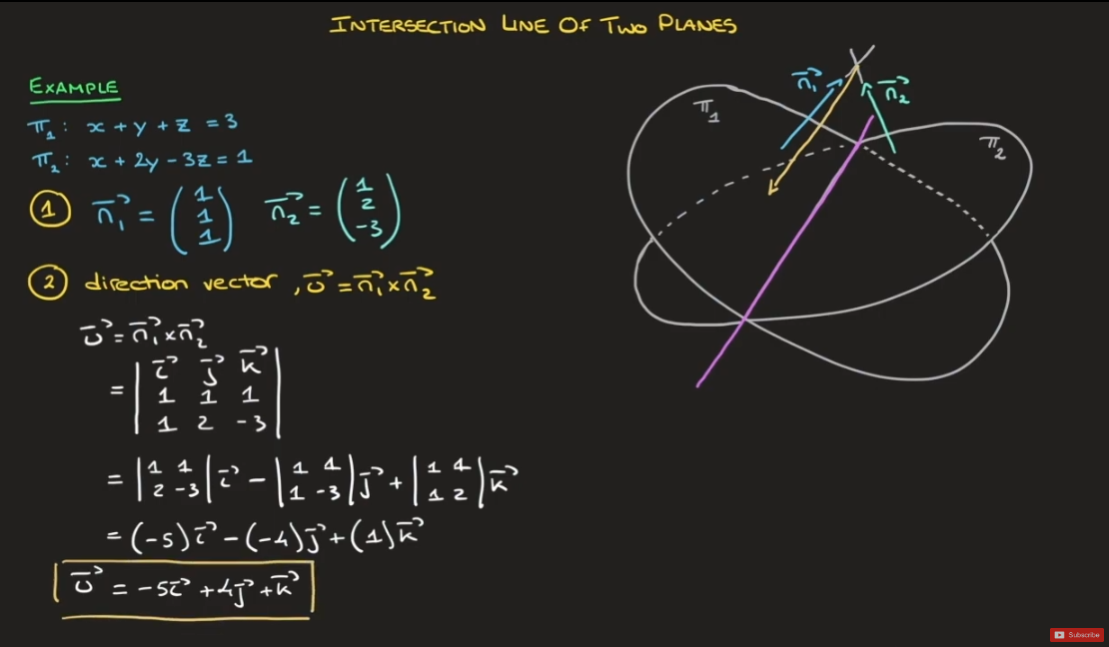 INTERSECTION LINE OF TWO PLANES
EXAMPLE
π₁: x + y + z = 3
π₂: x + 2y - 3z = 1
① n₁⃗ = (1 1 1) n₂⃗ = (1 2 -3)
② direction vector, υ⃗ = n₁⃗ × n₂⃗
υ⃗ = n₁⃗ × n₂⃗
= | i⃗ j⃗ k⃗ |
| 1 1 1 |
| 1 2 -3 |
= |1 1; 2 -3| i⃗ - |1 1; 1 -3| j⃗ + |1 1; 1 2| k⃗
= (-5) i⃗ - (-4) j⃗ + (1) k⃗
υ⃗ = -5i⃗ + 4j⃗ + k⃗
π₁
n₁⃗
n₂⃗
π₂
Subscribe